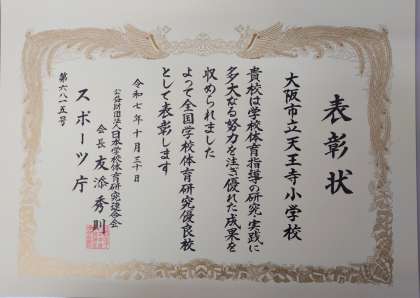 表彰状
大阪市立天王寺小学校
貴校は学校体育指導の研究実践に
多大なる努力を注ぎ優れた成果を
収められました
よって全国学校体育研究優良校
として表彰します
令和七年十月三十日
公益財団法人日本学校体育研究連合会
会長 友添秀則
スポーツ庁
第六八一五号